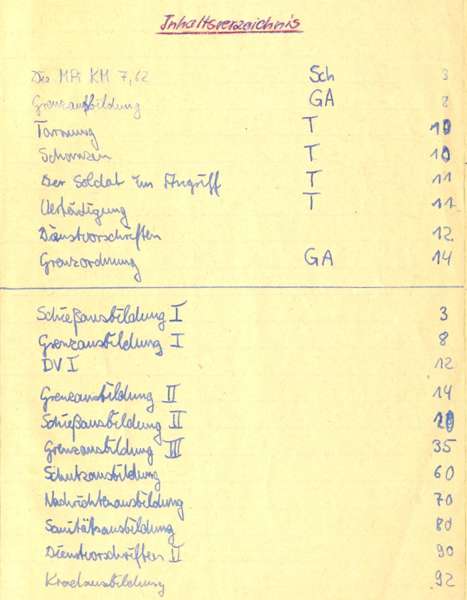 Inhaltsverzeichnis
Die MPi KM 7,62 Sch 3
Grenzausbildung GA 8
Tarnung T 10
Schanzen T 10
Der Soldat im Angriff T 11
Verteidigung T 11
Dienstvorschriften 12
Grenzordnung GA 14
Schießausbildung I 3
Grenzausbildung I 8
DV I 12
Grenzausbildung II 14
Schießausbildung II
Grenzausbildung III 35
Schutzausbildung 60
Nachrichtenausbildung 70
Sanitätsausbildung 80
Dienstvorschriften II 90
Kradausbildung 92